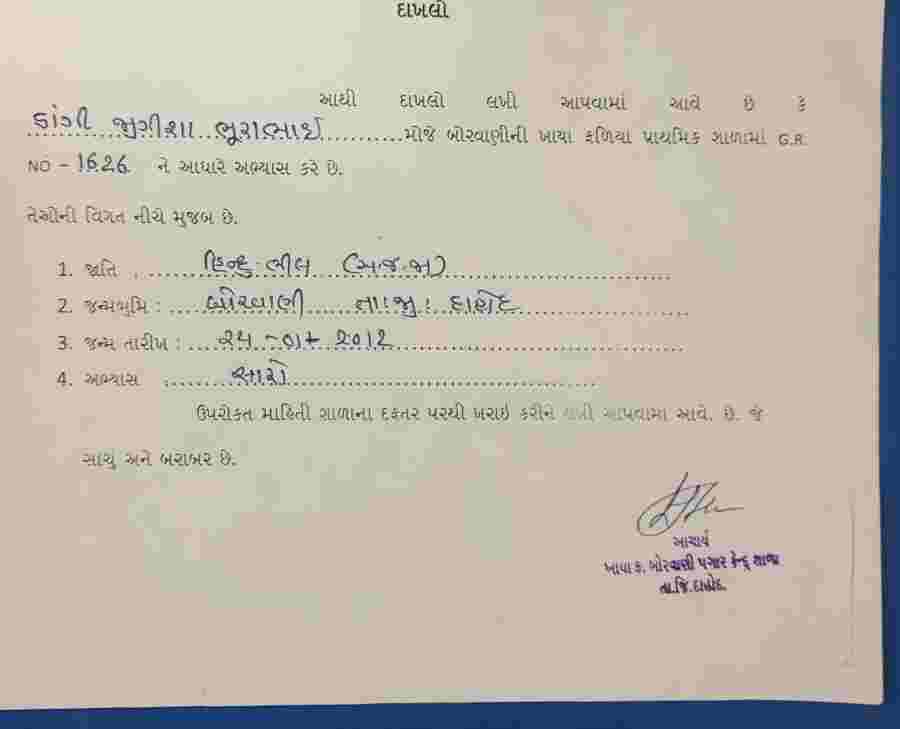 દાખલો
આથી દાખલો લખી આપવામાં આવે છે કે
ડાંગી જીગીશા ભૂરાભાઇ મોજે બોરવાણીની ખાયા ફળિયા પ્રાથમિક શાળામાં G.R.
NO - 1626 ને આધારે અભ્યાસ કરે છે.
તેઓની વિગત નીચે મુજબ છે.
1. જાતિ : હિન્દુ ભીલ (અ.જ.જા)
2. જન્મભૂમિ : બોરવાણી તા.જી: દાહોદ
3. જન્મ તારીખ : ૨૫ -૦૧- ૨૦૧૨
4. અભ્યાસ : સારો
ઉપરોક્ત માહિતી શાળાના દફતર પરથી ખરાઇ કરીને લખી આપવામાં આવે. છે. જે
સાચું અને બરાબર છે.
આચાર્ય
ખાયા ફ. બોરવાણી પગાર કેન્દ્ર શાળા
તા.જિ.દાહોદ